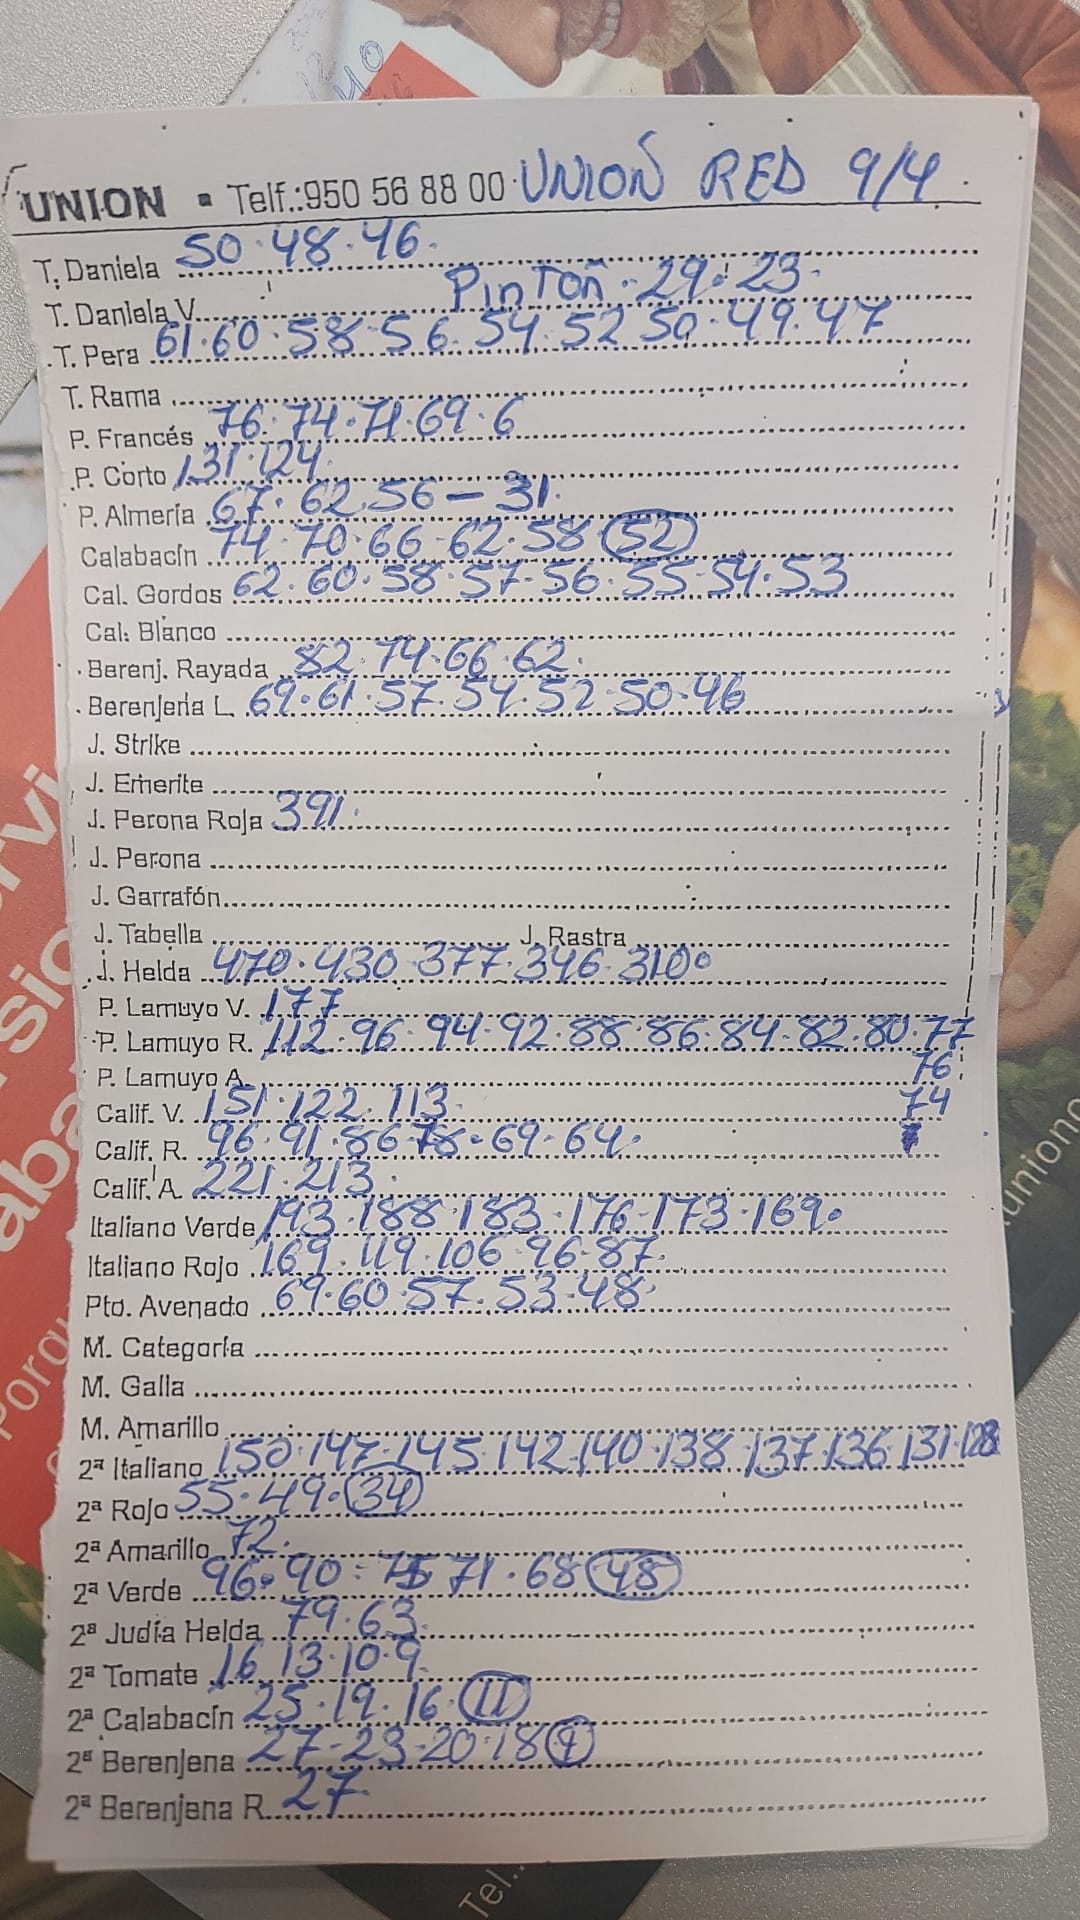 UNION - Telf.:950 56 88 00 · UNION RED 9/4
T. Daniela 50·48·46.
T. Daniela V. Pinton·29·23·
T. Pera 61·60·58·56·54·52 50·49·47
T. Rama
P. Francés 76·74·71·69·6
P. Corto 131·124.
P. Almería 67·62.56-31.
Calabacín 74·70·66·62·58 (52)
Cal. Gordos 62·60·58·57·56·55·54·53
Cal. Blanco
Berenj. Rayada 82·74·66·62.
Berenjena L. 69·61·57·54·52·50·46
J. Strike
J. Emerite
J. Perona Roja 391.
J. Perona
J. Garrafón
J. Tabella J. Rastra
J. Helda 470·430·377·346·310
P. Lamuyo V. 177
P. Lamuyo R. 112·96·94·92·88·86·84·82·80·77
76
P. Lamuyo A.
74
Calif. V. 151·122·113.
Calif. R. 96·91·86·78·69·64·
Calif. A. 221·213.
Italiano Verde 193·188·183·176·173·169·
Italiano Rojo 169·119·106·96·87.
Pto. Avenado 69·60·57·53·48·
M. Categoría
M. Galla
M. Amarillo
2ª Italiano 150·147·145·142·140·138·137·136·131·128
2ª Rojo 55·49·(34)
2ª Amarillo 72.
2ª Verde 96·90·75 71·68 (48)
2ª Judía Helda 79·63.
2ª Tomate 16 13·10·9.
2ª Calabacín 25·19·16·(11)
2ª Berenjena 27·23·20·18 (9)
2ª Berenjena R. 27.
Tel..